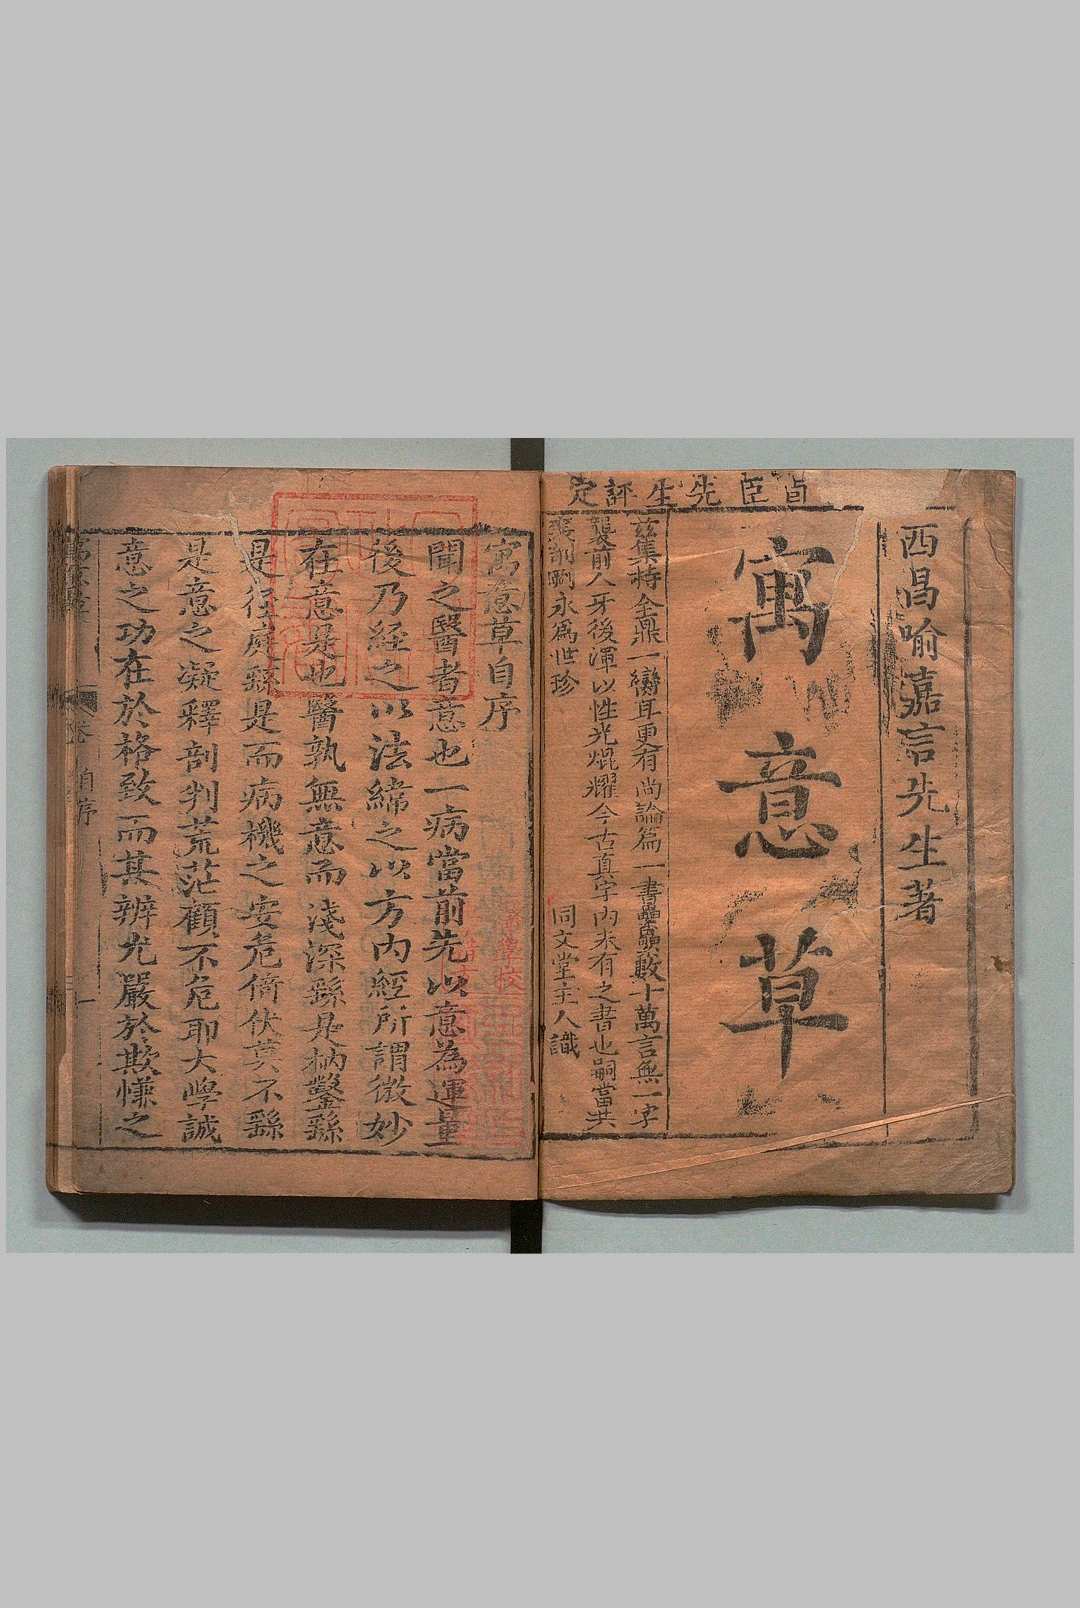 貞臣先生評定
西昌喻嘉言先生著
寓意草
茲集特全鼎一臠耳更有尚論篇一書矗矗數十萬言無一字
襲前人牙後渾以性光焜耀今古真宇內未有之書也嗣當共
永爲世珍
同文堂主人識
寓意草自序
聞之醫者意也一病當前先以意為運量
後乃經之以法緯之以方內經所謂微妙
在意是也醫孰無意而淺深繇是枘鑿繇
是徑庭繇是而病機之安危倚伏莫不繇
是意之凝釋剖判荒茫顧不危耶大學誠
意之功在於格致而其辨尤嚴於欺慊之
自序
一